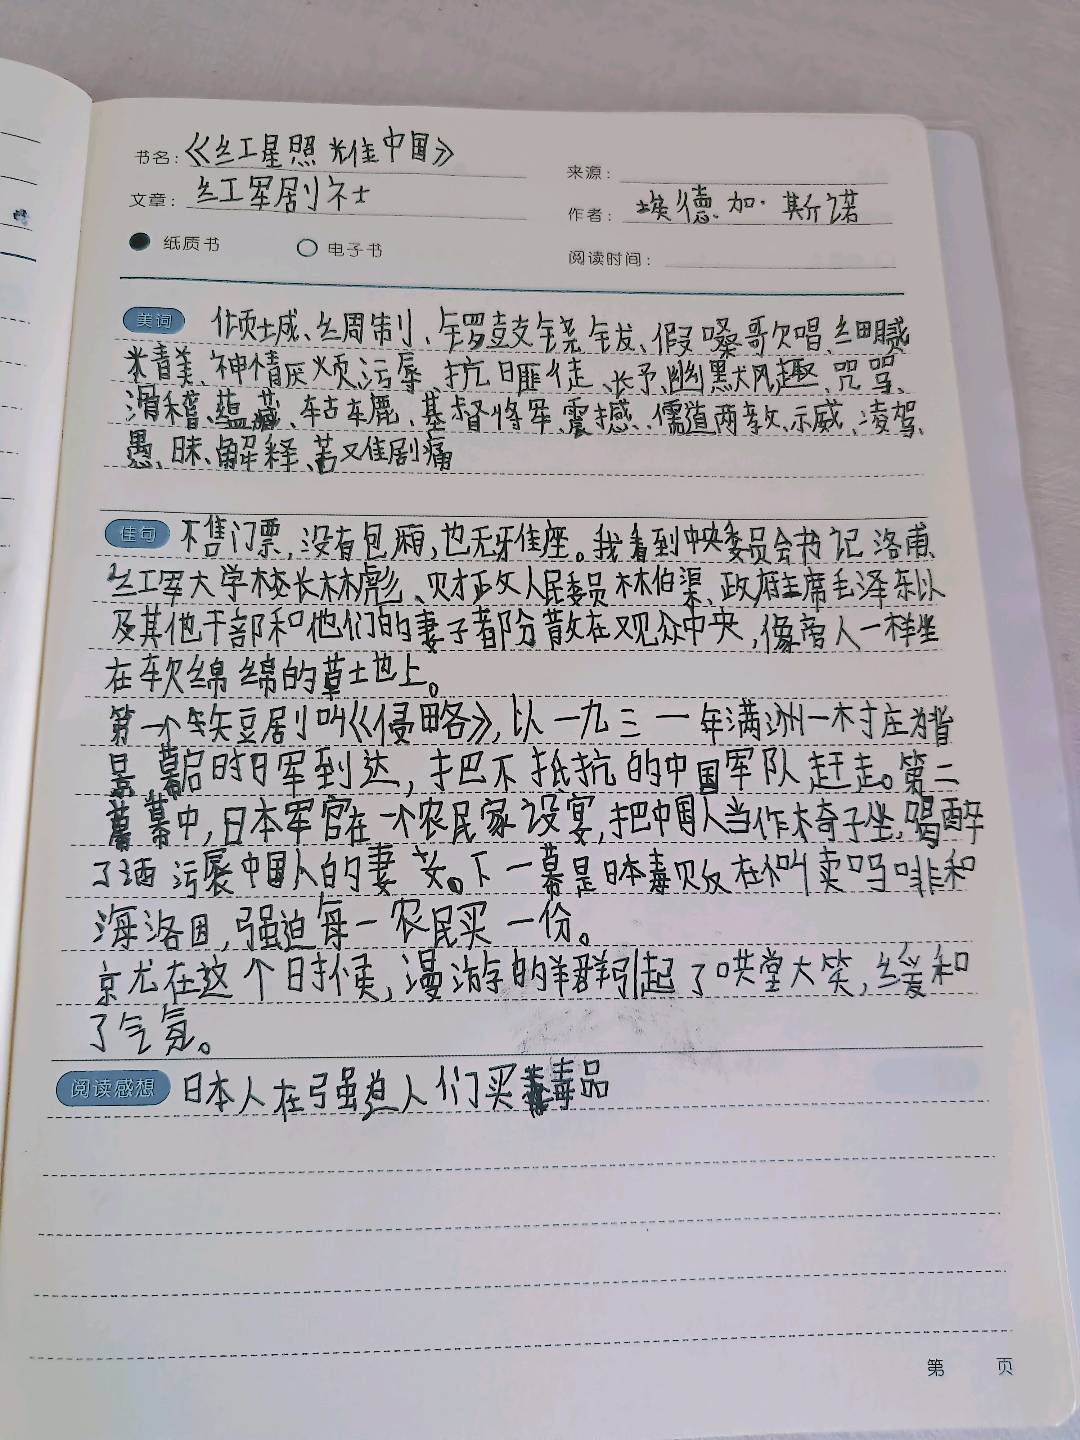 书名：《红星照耀中国》
来源：
文章：红军剧社
作者：埃德加·斯诺
纸质书 电子书
阅读时间：
美词 倾城、绸制、锣鼓铙钹、假嗓歌唱、细腻
精美、神情厌烦、污辱、抗日匪徒、长矛、幽默风趣、咒骂、
滑稽、蕴藏、轱辘、基督将军、震撼、儒道两教、示威、凌驾、
愚昧、解释、苦难剧痛
佳句 不售门票，没有包厢，也无雅座。我看到中央委员会书记洛甫、
红军大学校长林彪、财政人民委员林伯渠、政府主席毛泽东以
及其他干部和他们的妻子都分散在观众中央，像旁人一样坐
在软绵绵的草土地上。
第一个短剧叫《侵略》，以一九三一年满洲一村庄为背
景，幕启时日军到达，把不抵抗的中国军队赶走。第二
幕中，日本军官在一个农民家设宴，把中国人当作椅子坐，喝醉
了酒污辱中国人的妻女。下一幕是日本毒贩在叫卖吗啡和
海洛因，强迫每一农民买一份。
就在这个时候，漫游的羊群引起了哄堂大笑，缓和
了气氛。
阅读感想 日本人在强迫人们买毒品
第 页